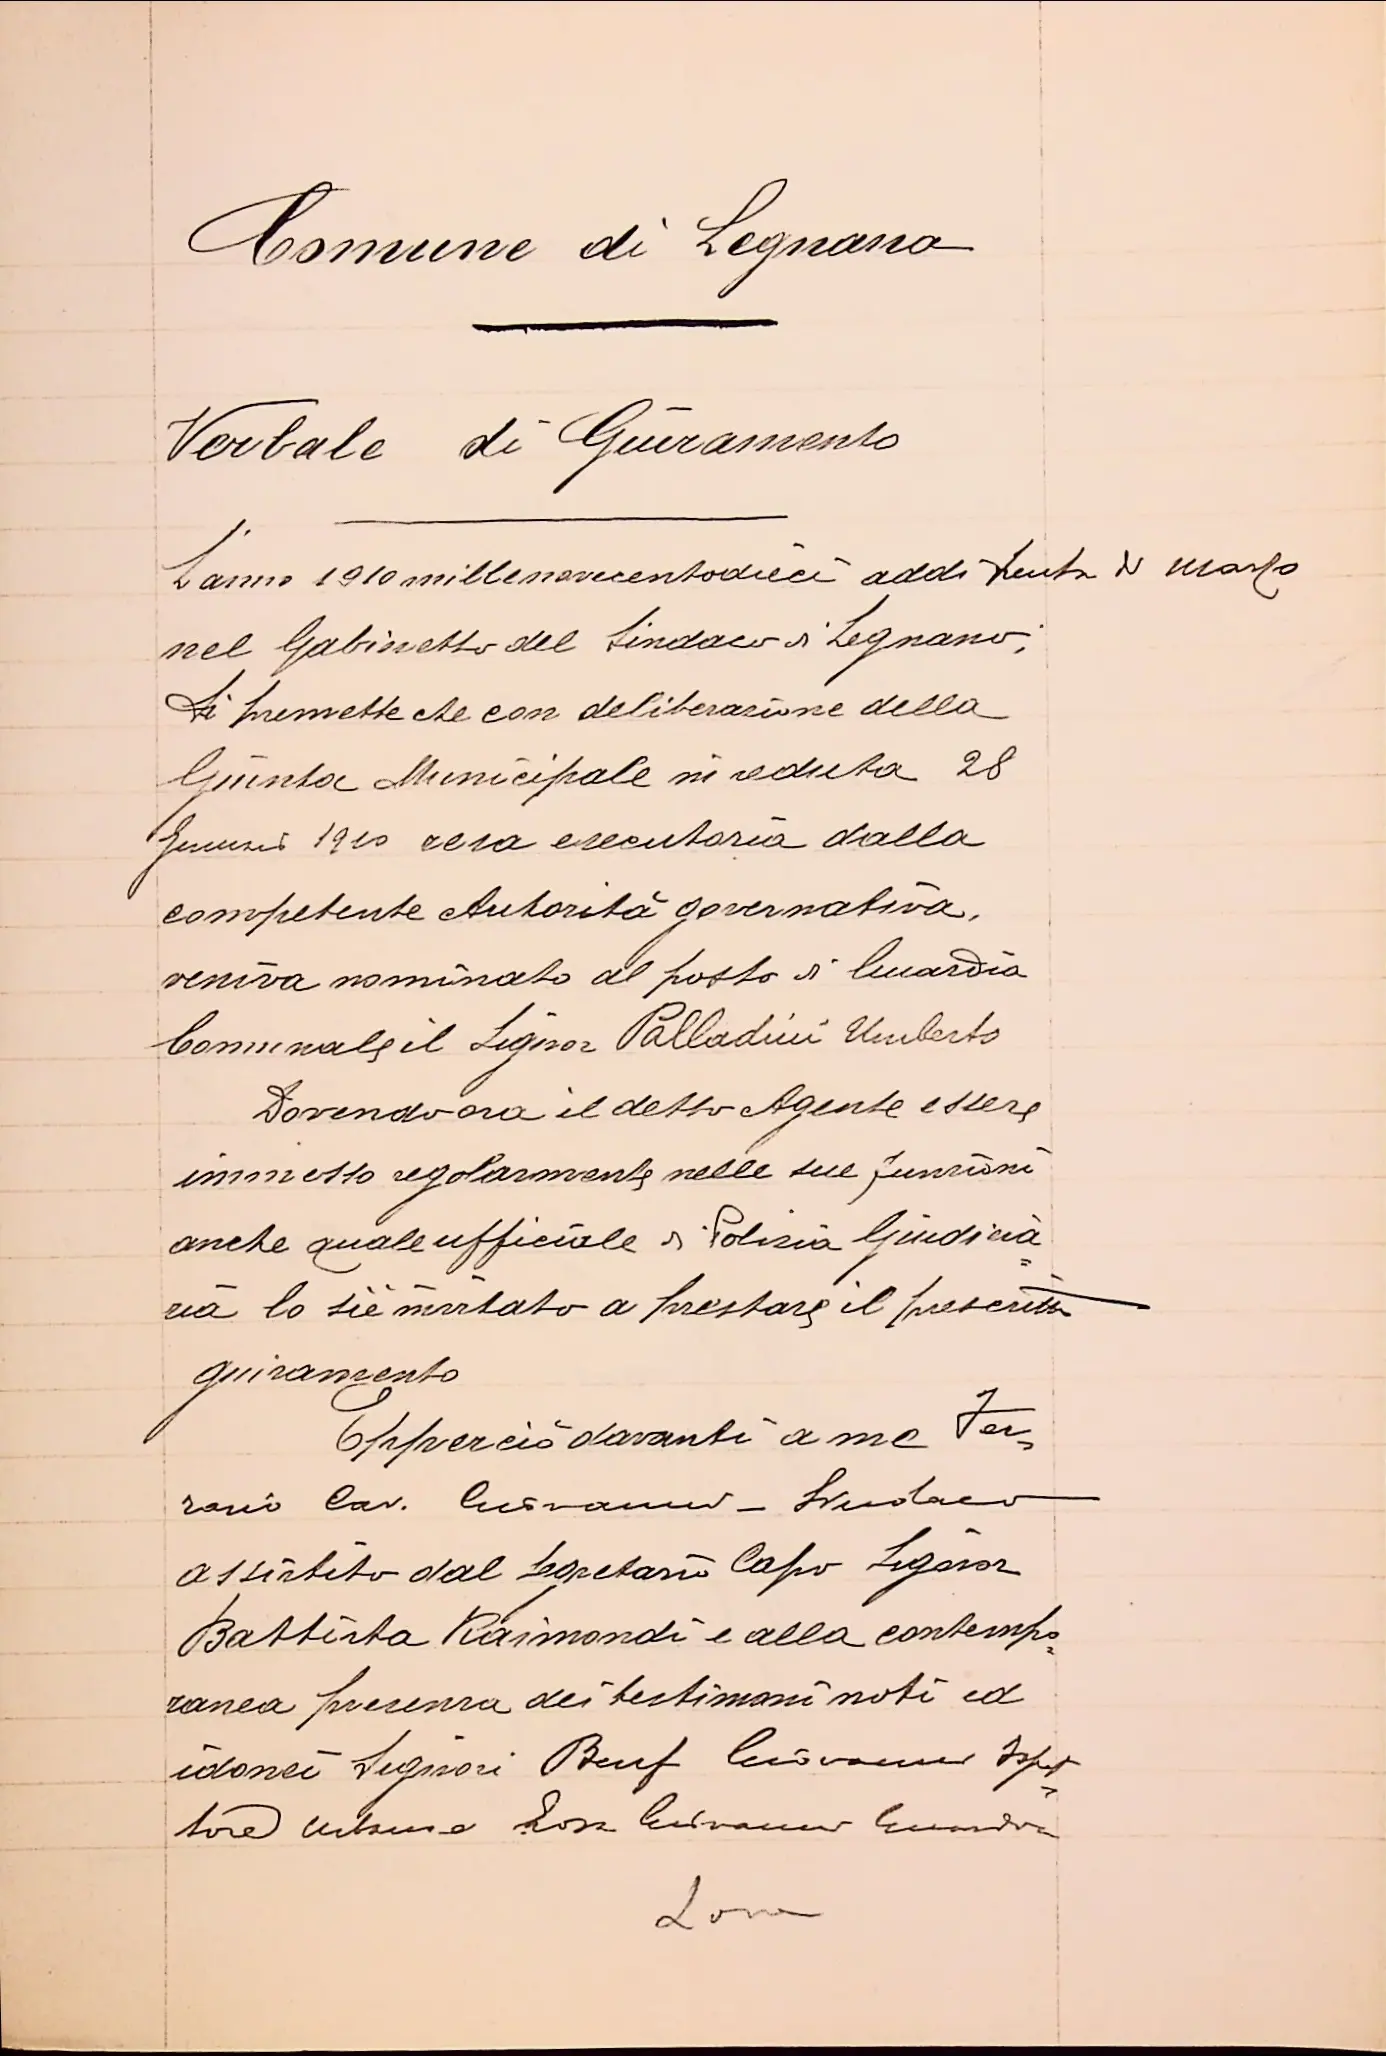 Comune di Legnano
Verbale di Giuramento
L'anno 1910 millenovecentodieci addi trenta di Marzo
nel Gabinetto del Sindaco di Legnano;
Si premette che con deliberazione della
Giunta Municipale in seduta 28
Gennaio 1910 resa esecutoria dalla
competente Autorità governativa,
veniva nominato al posto di Guardia
Comunale il Signor Palladini Umberto
Dovendo ora il detto Agente essere
immesso regolarmente nelle sue funzioni
anche quale ufficiale di Polizia Giudizia=
ria lo si è invitato a prestare il prescritto
giuramento
Epperciò davanti a me Fer=
rario Cav. Giovanni - Sindaco
assistito dal Segretario Capo Signor
Battista Raimondi e alla contempo=
ranea presenza dei testimoni noti ed
idonei Signori Giovanni Ispet=
tore Urbano Giovanni Guardia